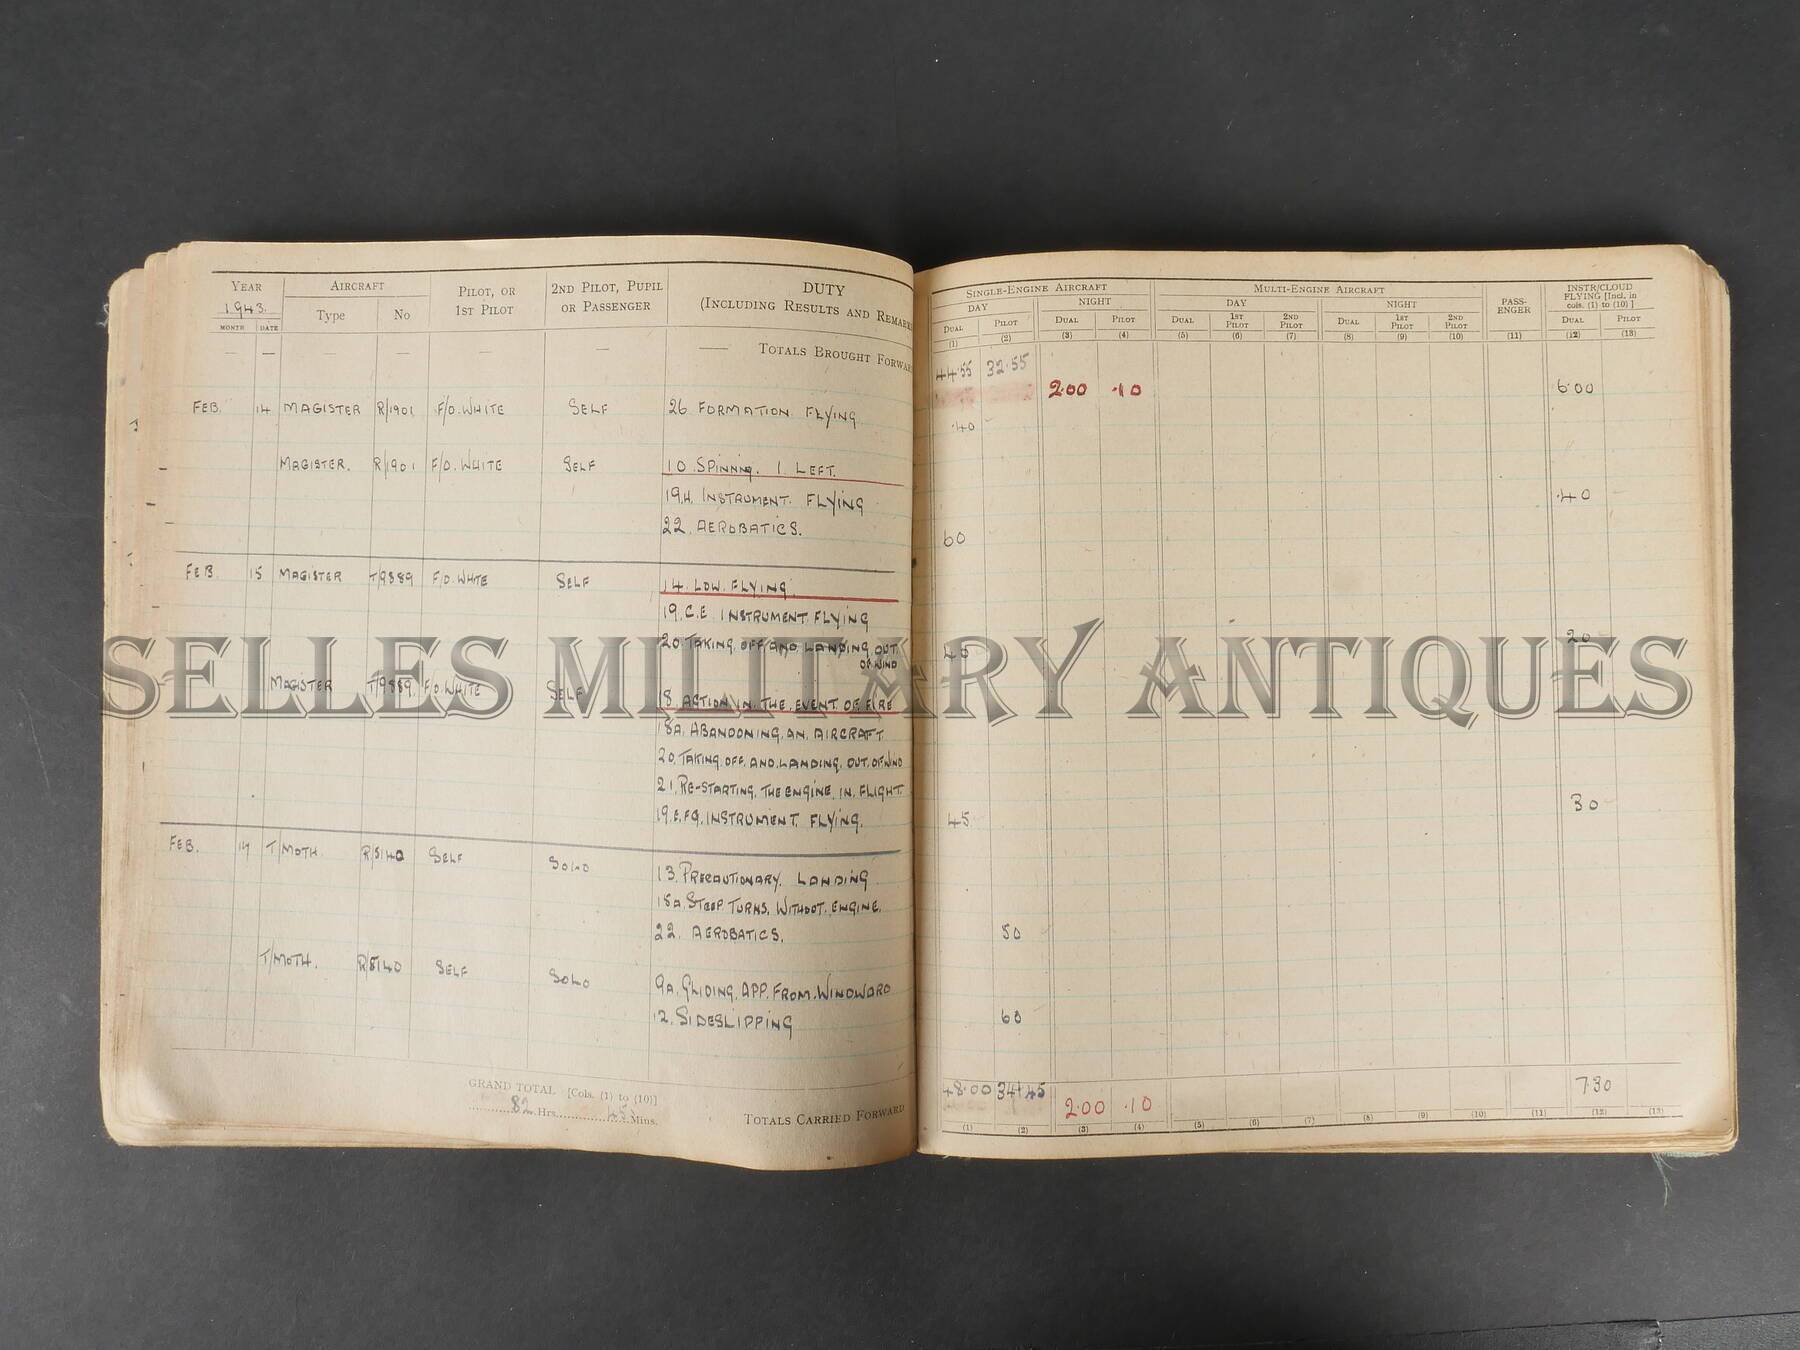 YEAR AIRCRAFT PILOT, OR 1ST PILOT 2ND PILOT, PUPIL OR PASSENGER DUTY (INCLUDING RESULTS AND REMARK
1943. Type No
MONTH DATE
— — — — — — — TOTALS BROUGHT FORWAR
FEB. 14 MAGISTER R/1901 F/O. WHITE SELF 26 FORMATION FLYING
MAGISTER. R/1901 F/O. WHITE SELF 10. SPINNING. 1 LEFT.
19.H. INSTRUMENT. FLYING
22. AEROBATICS.
FEB. 15 MAGISTER T/9889 F/O. WHITE SELF 14. LOW. FLYING
19. C.E. INSTRUMENT FLYING
20. TAKING OFF AND LANDING OUT
OF WIND
MAGISTER T/9889. F/O. WHITE SELF 18 ACTION. IN. THE. EVENT. OF. FIRE
18A. ABANDONING. AN. AIRCRAFT
20. TAKING. OFF. AND. LANDING. OUT. OF. WIND
21. RE-STARTING. THE ENGINE. IN. FLIGHT.
19. E.F.G. INSTRUMENT. FLYING.
FEB. 17 T/MOTH. R/5140 SELF SOLO 13. PRECAUTIONARY. LANDING
18A. STEEP TURNS. WITHOUT. ENGINE.
22. AEROBATICS.
T/MOTH. R/5140 SELF SOLO 9A. GLIDING. APP. FROM. WINDWARD
12. SIDESLIPPING
GRAND TOTAL [Cols. (1) to (10)]
82 Hrs. 45 Mins.
TOTALS CARRIED FORWARD
SINGLE-ENGINE AIRCRAFT MULTI-ENGINE AIRCRAFT PASS-ENGER INSTR/CLOUD FLYING [Incl. in cols. (1) to (10)]
DAY NIGHT DAY NIGHT
DUAL PILOT DUAL PILOT DUAL 1ST PILOT 2ND PILOT DUAL 1ST PILOT 2ND PILOT DUAL PILOT
(1) (2) (3) (4) (5) (6) (7) (8) (9) (10) (11) (12) (13)
44.55 32.55
2.00 .10 6.00
.40
.40
60
20
40
30
45
50
60
48.00 34.45 2.00 .10 7.30
(1) (2) (3) (4) (5) (6) (7) (8) (9) (10) (11) (12) (13)
SELLES MILITARY ANTIQUES